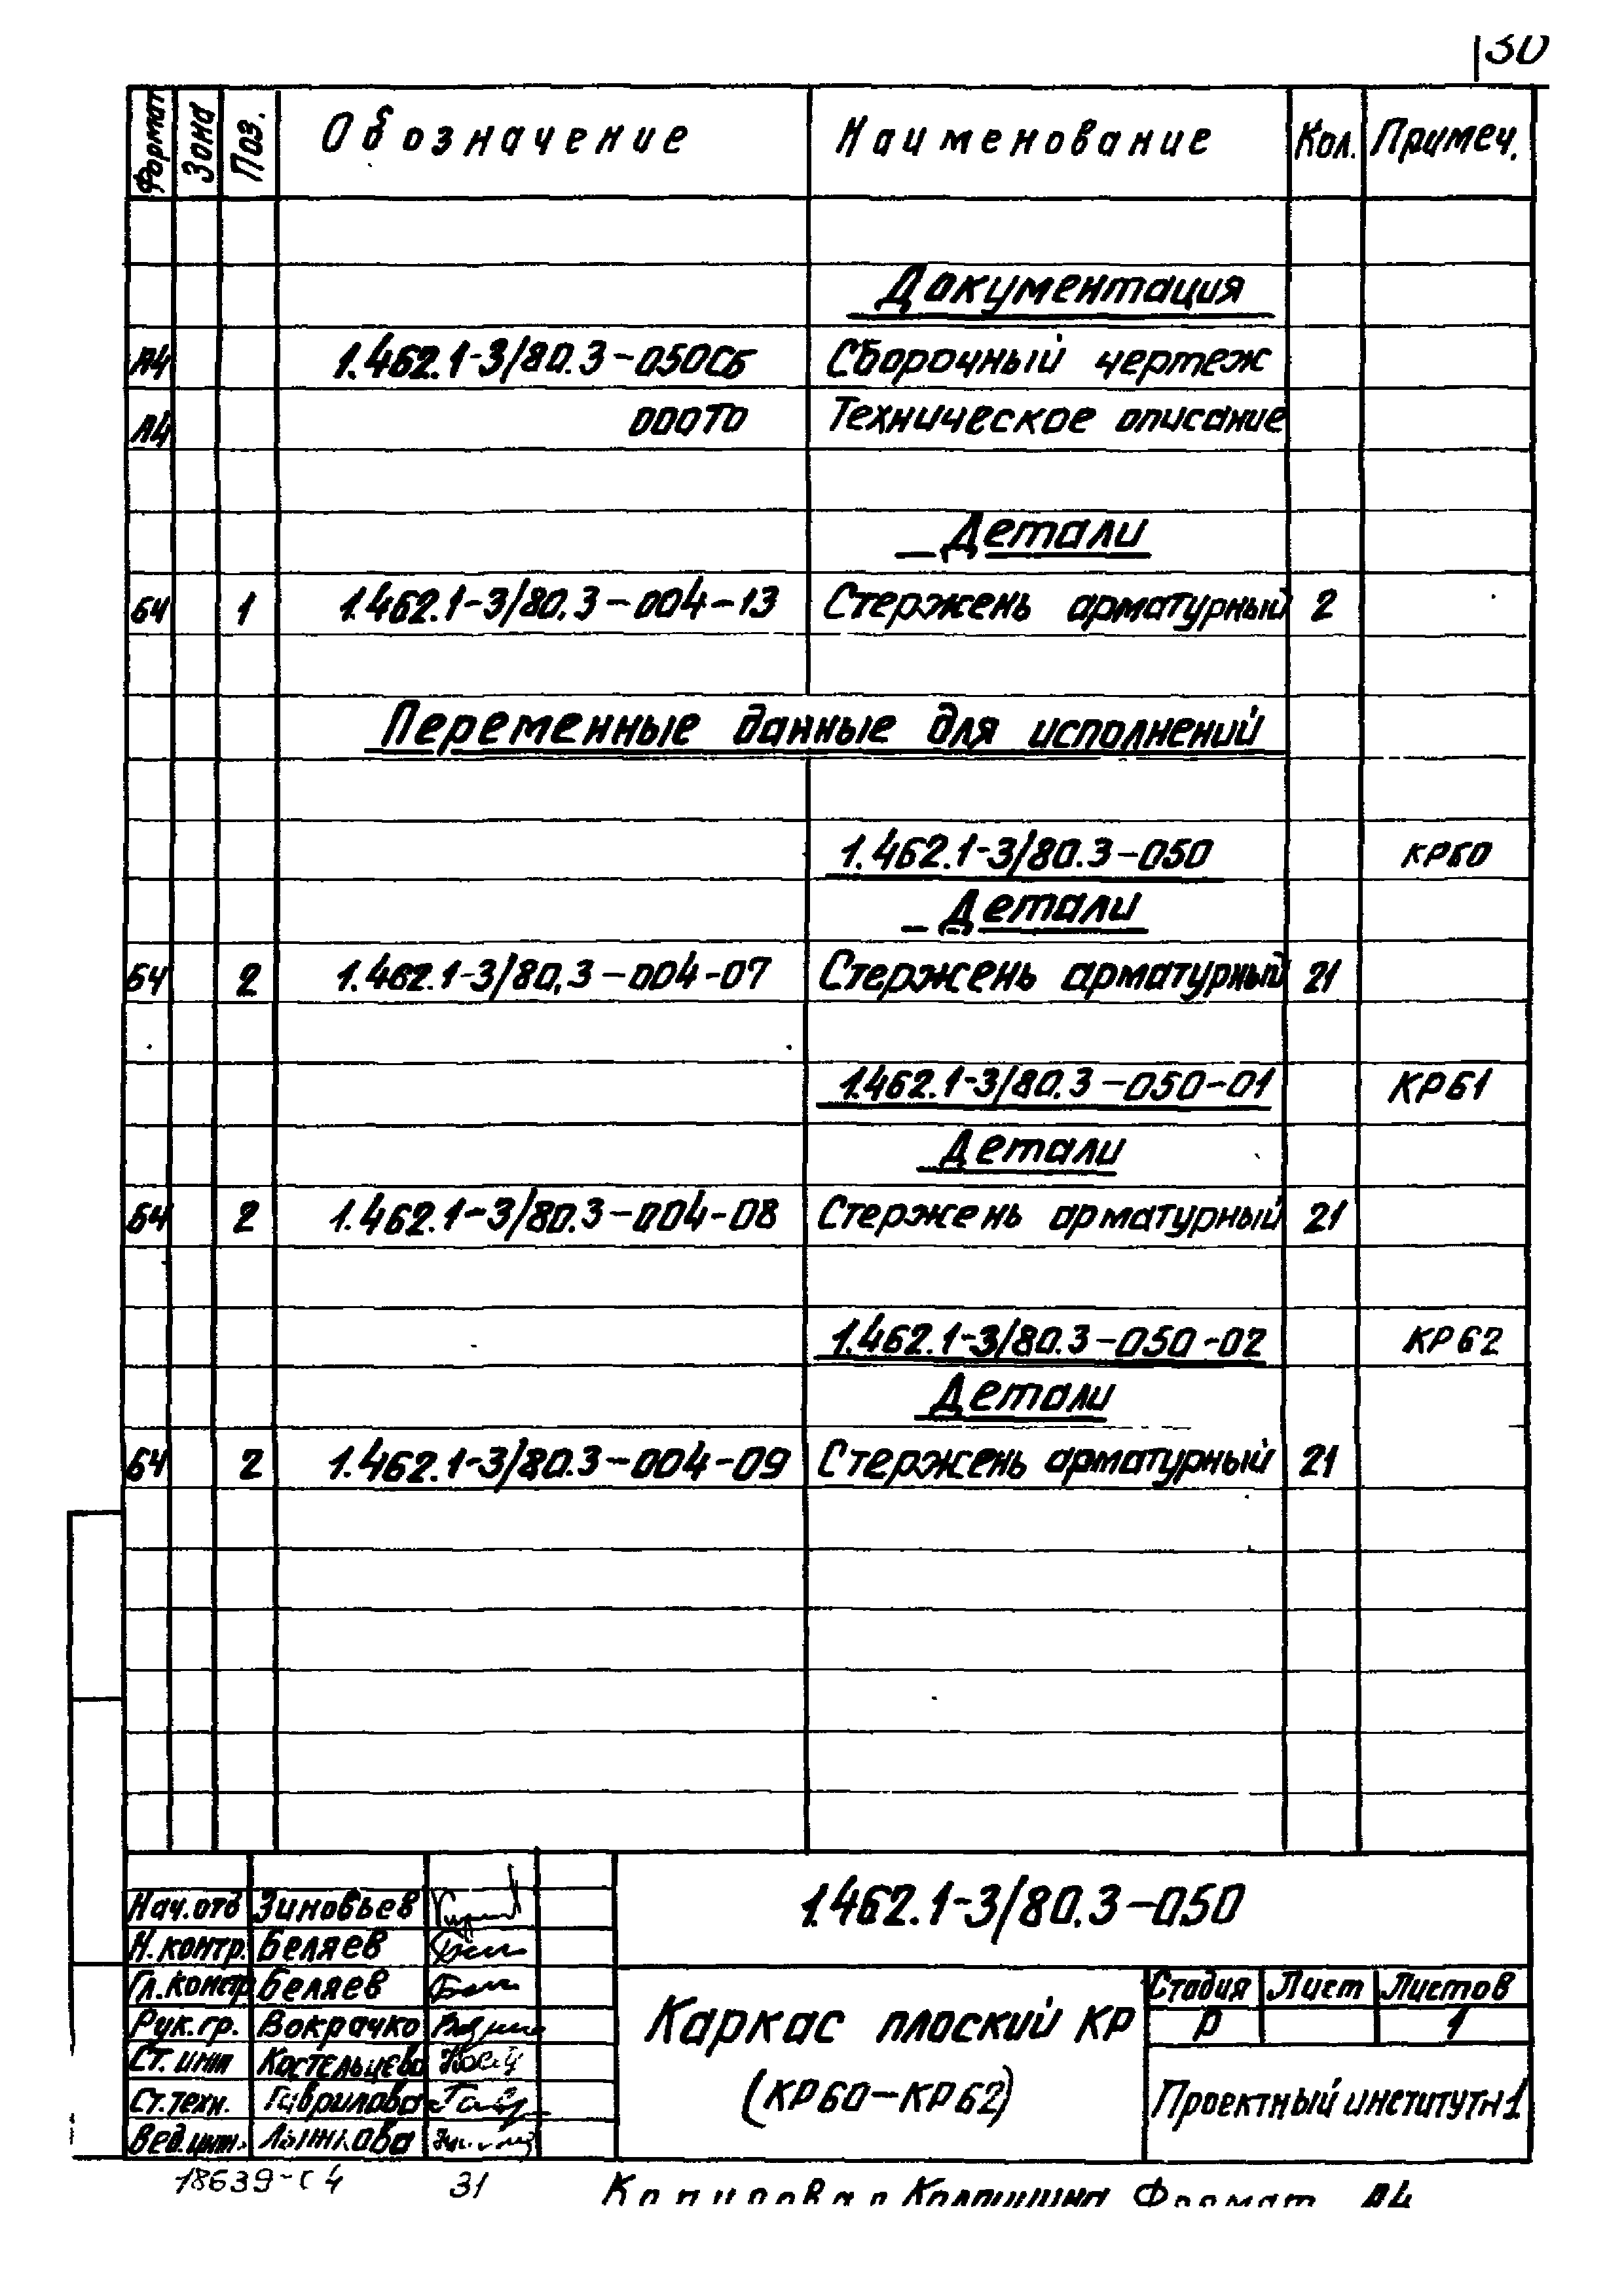 30
Формат Зона Поз. Обозначение Наименование Кол. Примеч.
Документация
А4 1.462.1-3/80.3-050СБ Сборочный чертеж
А4 000ТО Техническое описание
Детали
БЧ 1 1.462.1-3/80.3-004-13 Стержень арматурный 2
Переменные данные для исполнений
1.462.1-3/80.3-050 КР60
Детали
БЧ 2 1.462.1-3/80.3-004-07 Стержень арматурный 21
1.462.1-3/80.3-050-01 КР61
Детали
БЧ 2 1.462.1-3/80.3-004-08 Стержень арматурный 21
1.462.1-3/80.3-050-02 КР62
Детали
БЧ 2 1.462.1-3/80.3-004-09 Стержень арматурный 21
1.462.1-3/80.3-050
Нач.отд Зиновьев
Н.контр. Беляев
Гл.констр Беляев
Рук.гр. Вокрачко
Ст.инж Костельцева
Ст.техн. Гаврилова
Вед.инж.
Каркас плоский КР
(КР60-КР62)
Стадия Лист Листов
Р 1
Проектный институт N1
18639-С4 31
Копировал Формат А4